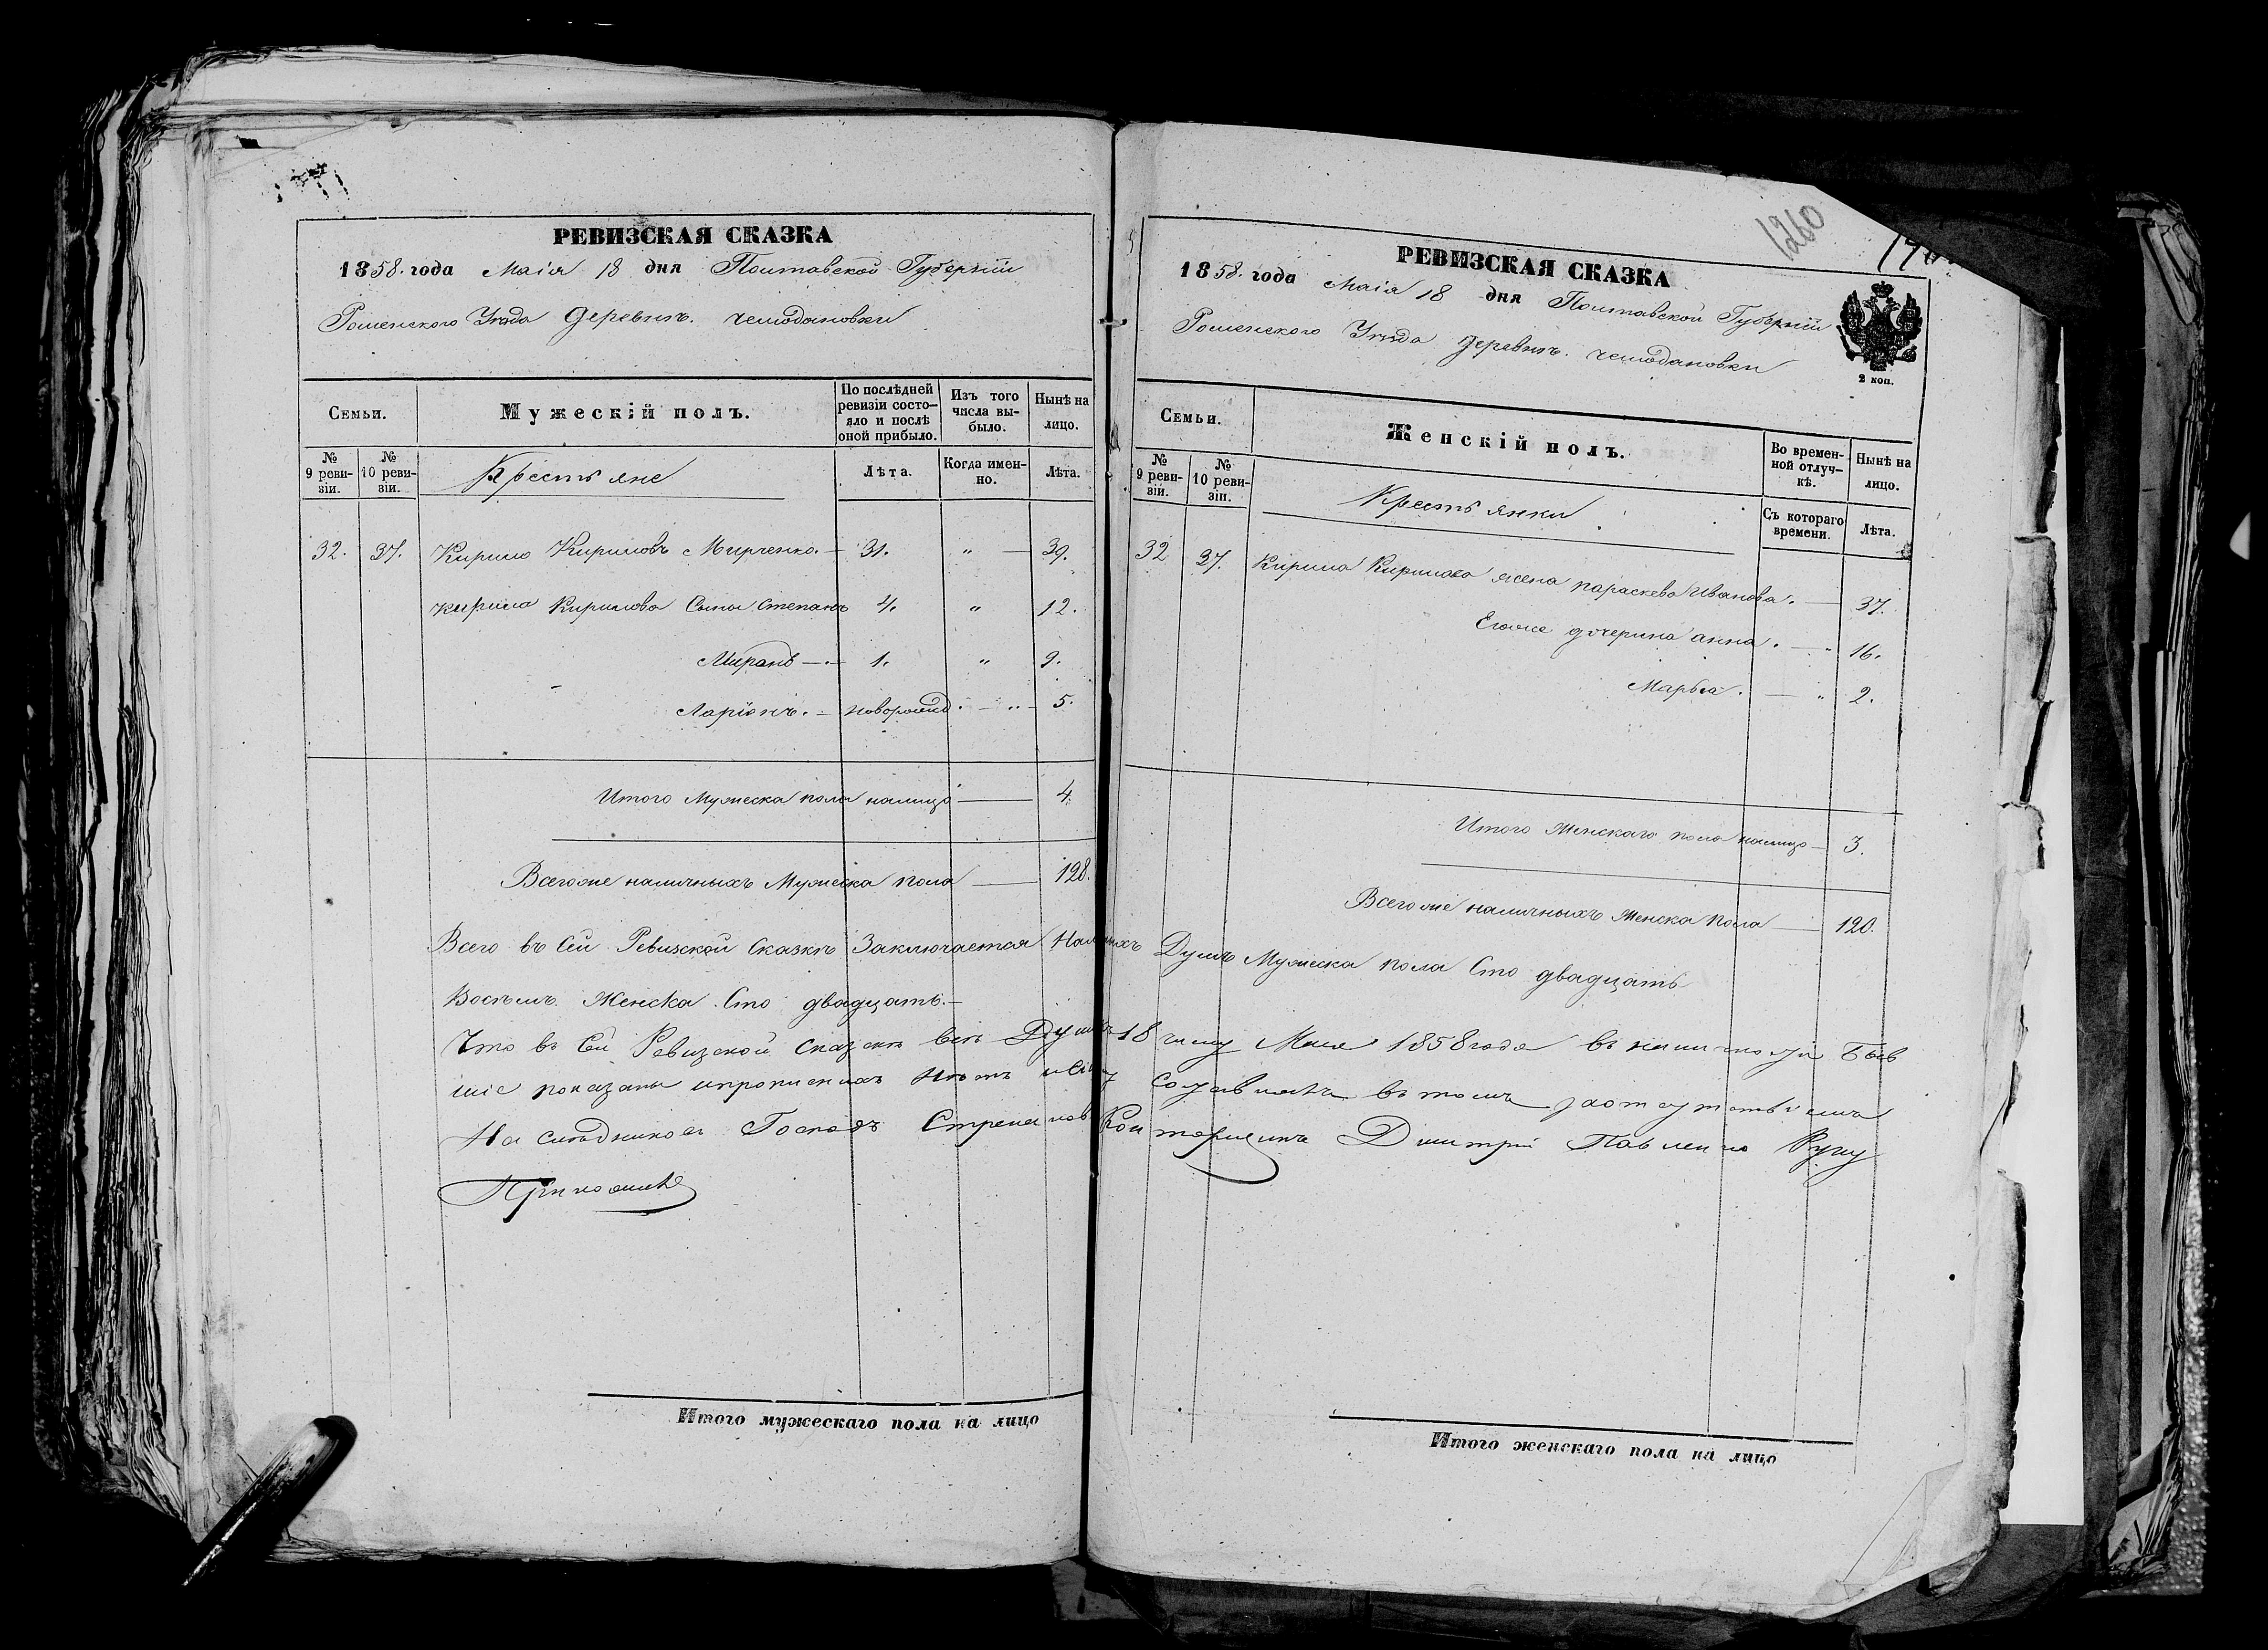 РЕВИЗСКАЯ СКАЗКА
1858. года Маія 18 дня Полтавской Губерніи
Роменского Уезда Деревнѣ. чемодановки
Семьи.
Мужескій полъ.
По послѣдней ревизіи состо-яло и послѣ оной прибыло.
Изъ того числа вы-было.
Нынѣ на лицо.
№ 9 реви-зіи.
№ 10 реви-зіи.
Крестьяне
Лѣта.
Когда имен-но.
Лѣта.
32. 37. Кирило Кириловъ Мирченко. — 31. " — 39.
Кирила Кирилова Сыны Степанъ 4. " 12.
Миронъ — 1. " 9.
Ларіонъ. — новорожд. — " — 5.
Итого Мужеска пола налицо — 4.
Всегоже наличныхъ Мужеска пола — 128.
РЕВИЗСКАЯ СКАЗКА
1260
1858. года Маія 18 дня Полтавской Губерніи
Роменского Уезда Деревнѣ. чемодановки
2 коп.
Семьи.
Женскій полъ.
Во времен-ной отлуч-кѣ.
Нынѣ на лицо.
№ 9 реви-зіи.
№ 10 реви-зіи.
Крестьянки
Съ котораго времени.
Лѣта.
32 37. Кирила Кирилова жена параскева Иванова. — 37.
Егоже дочерина анна. — " 16.
Марья. — " 2.
Итого Женскаго пола налицо — 3.
Всегоже наличныхъ Женска пола — 120.
Всего въ Сей Ревизской Сказкѣ Заключается Наличныхъ Душъ Мужеска пола Сто двадцать
Восемь. Женска. Сто двадцать. —
Что въ Сей Ревизской сказкѣ всѣ Души 18 числу Мая 1858 года въ наличности Быв
шіе показаны и прописныхъ Нѣтъ въ томъ
Наследниковъ Господъ Конторщикъ Дмитрій Павленко Руку
Приложилъ
Итого мужескаго пола на лицо
Итого женскаго пола на лицо